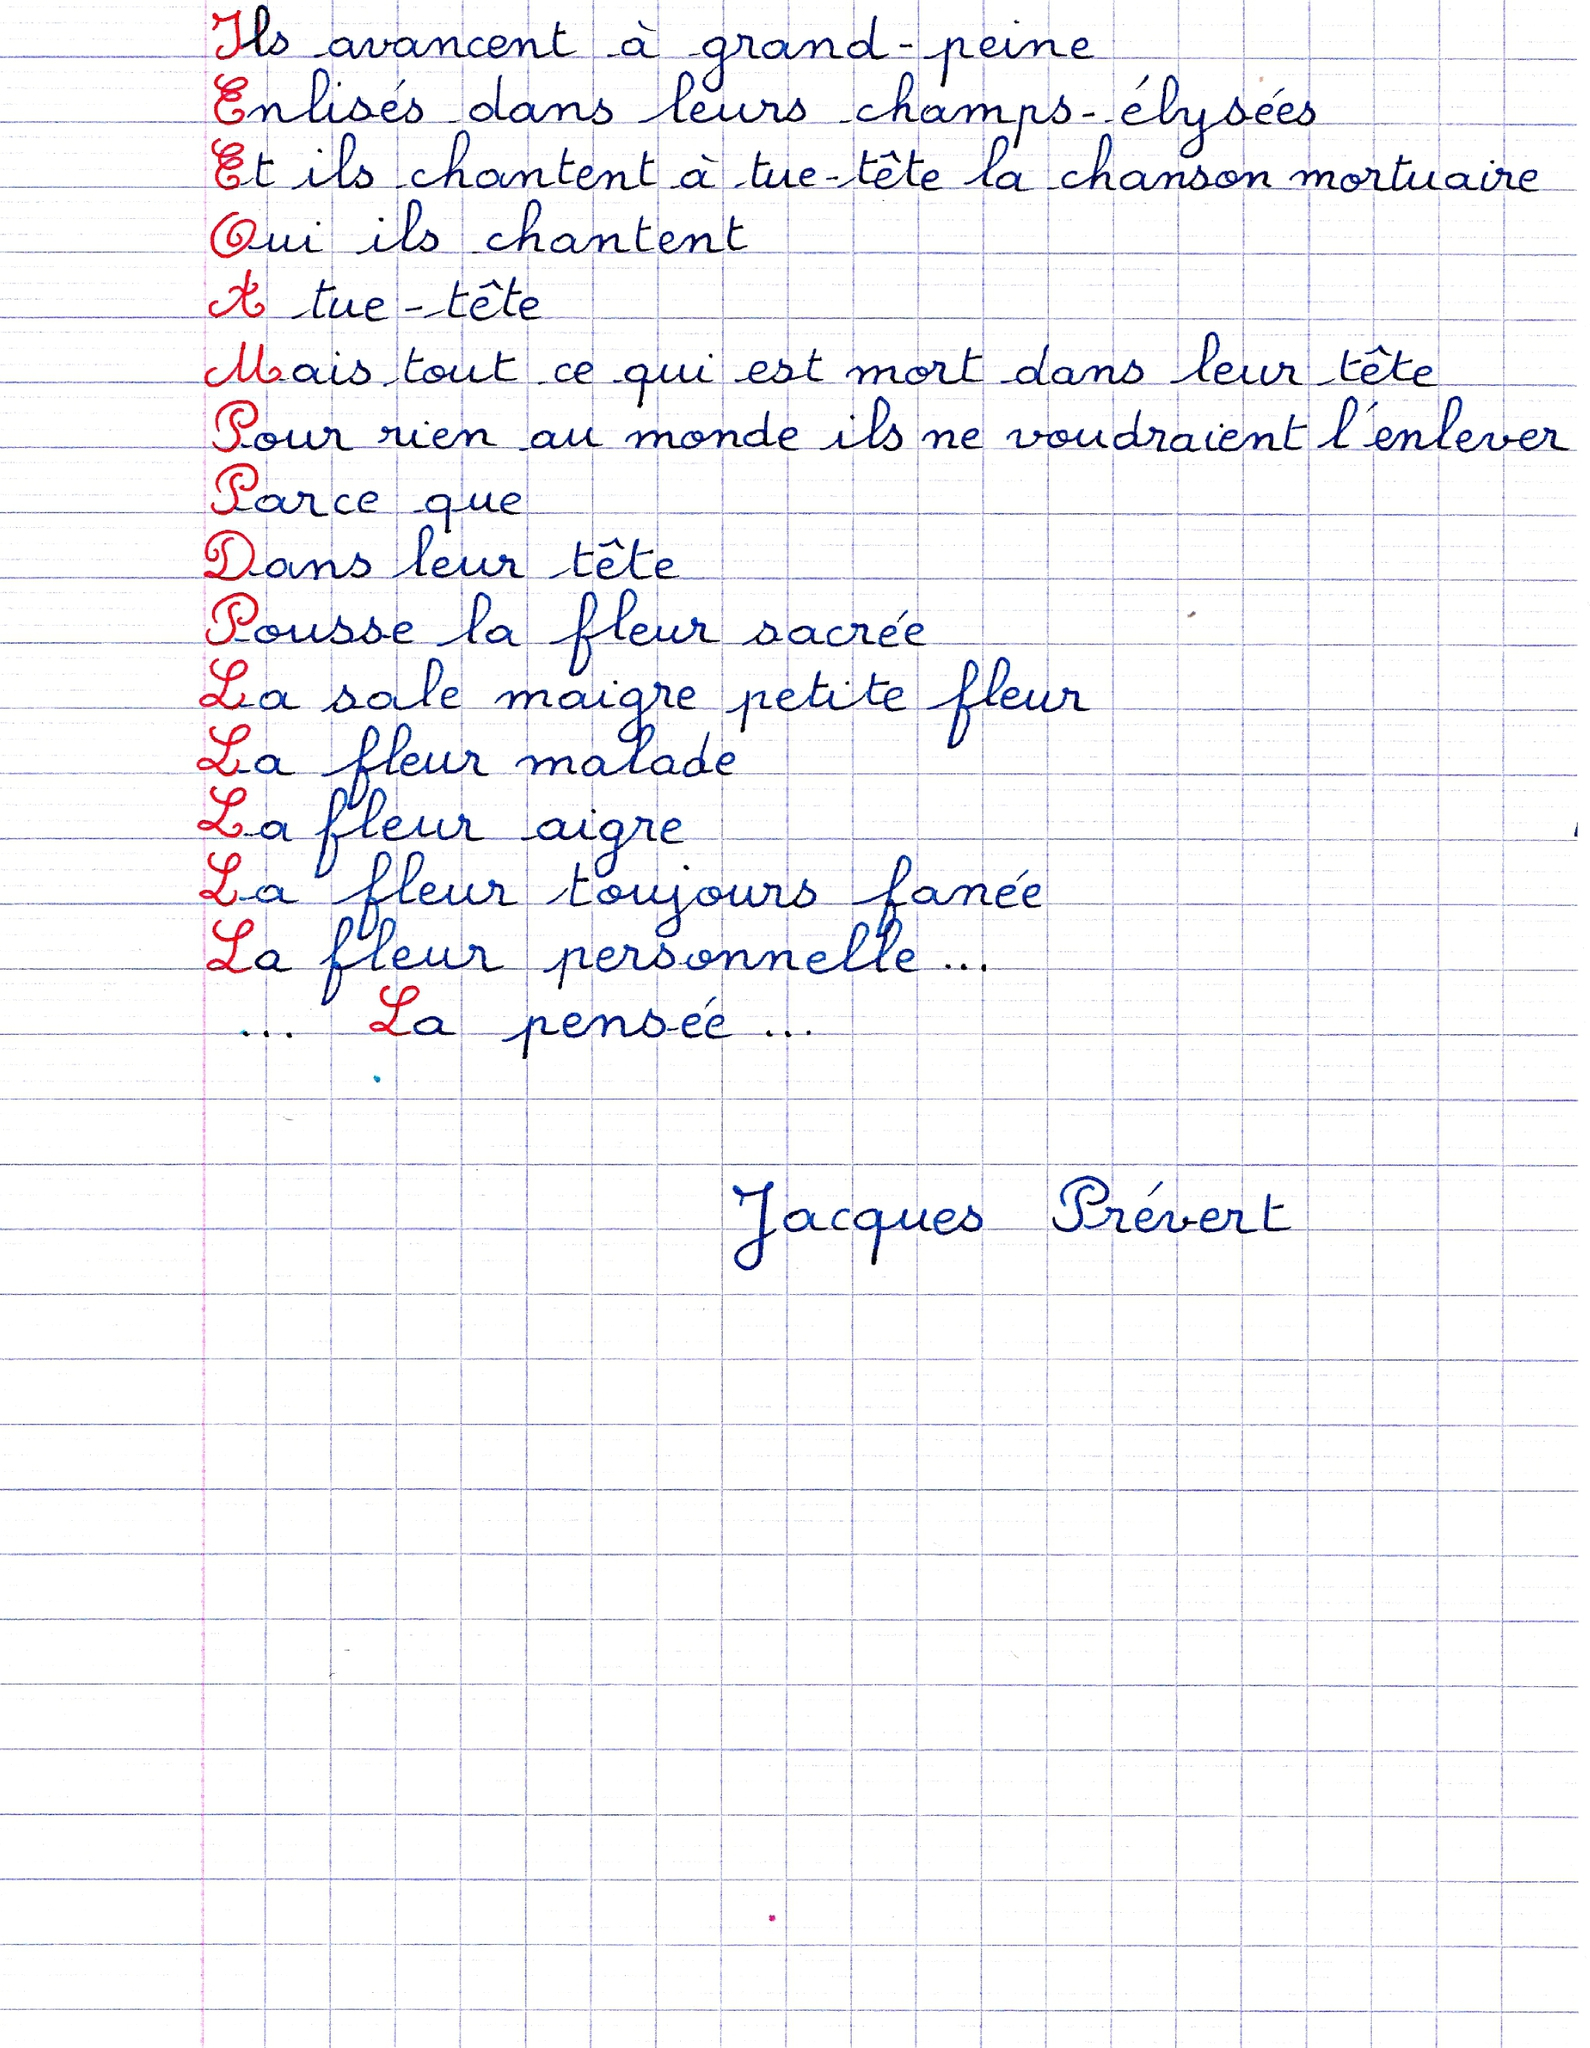 Ils avancent à grand-peine
Enlisés dans leurs champs-élysées
Et ils chantent à tue-tête la chanson mortuaire
Oui ils chantent
A tue-tête
Mais tout ce qui est mort dans leur tête
Pour rien au monde ils ne voudraient l'enlever
Parce que
Dans leur tête
Pousse la fleur sacrée
La sale maigre petite fleur
La fleur malade
La fleur aigre
La fleur toujours fanée
La fleur personnelle...
... La pensée...
Jacques Prévert